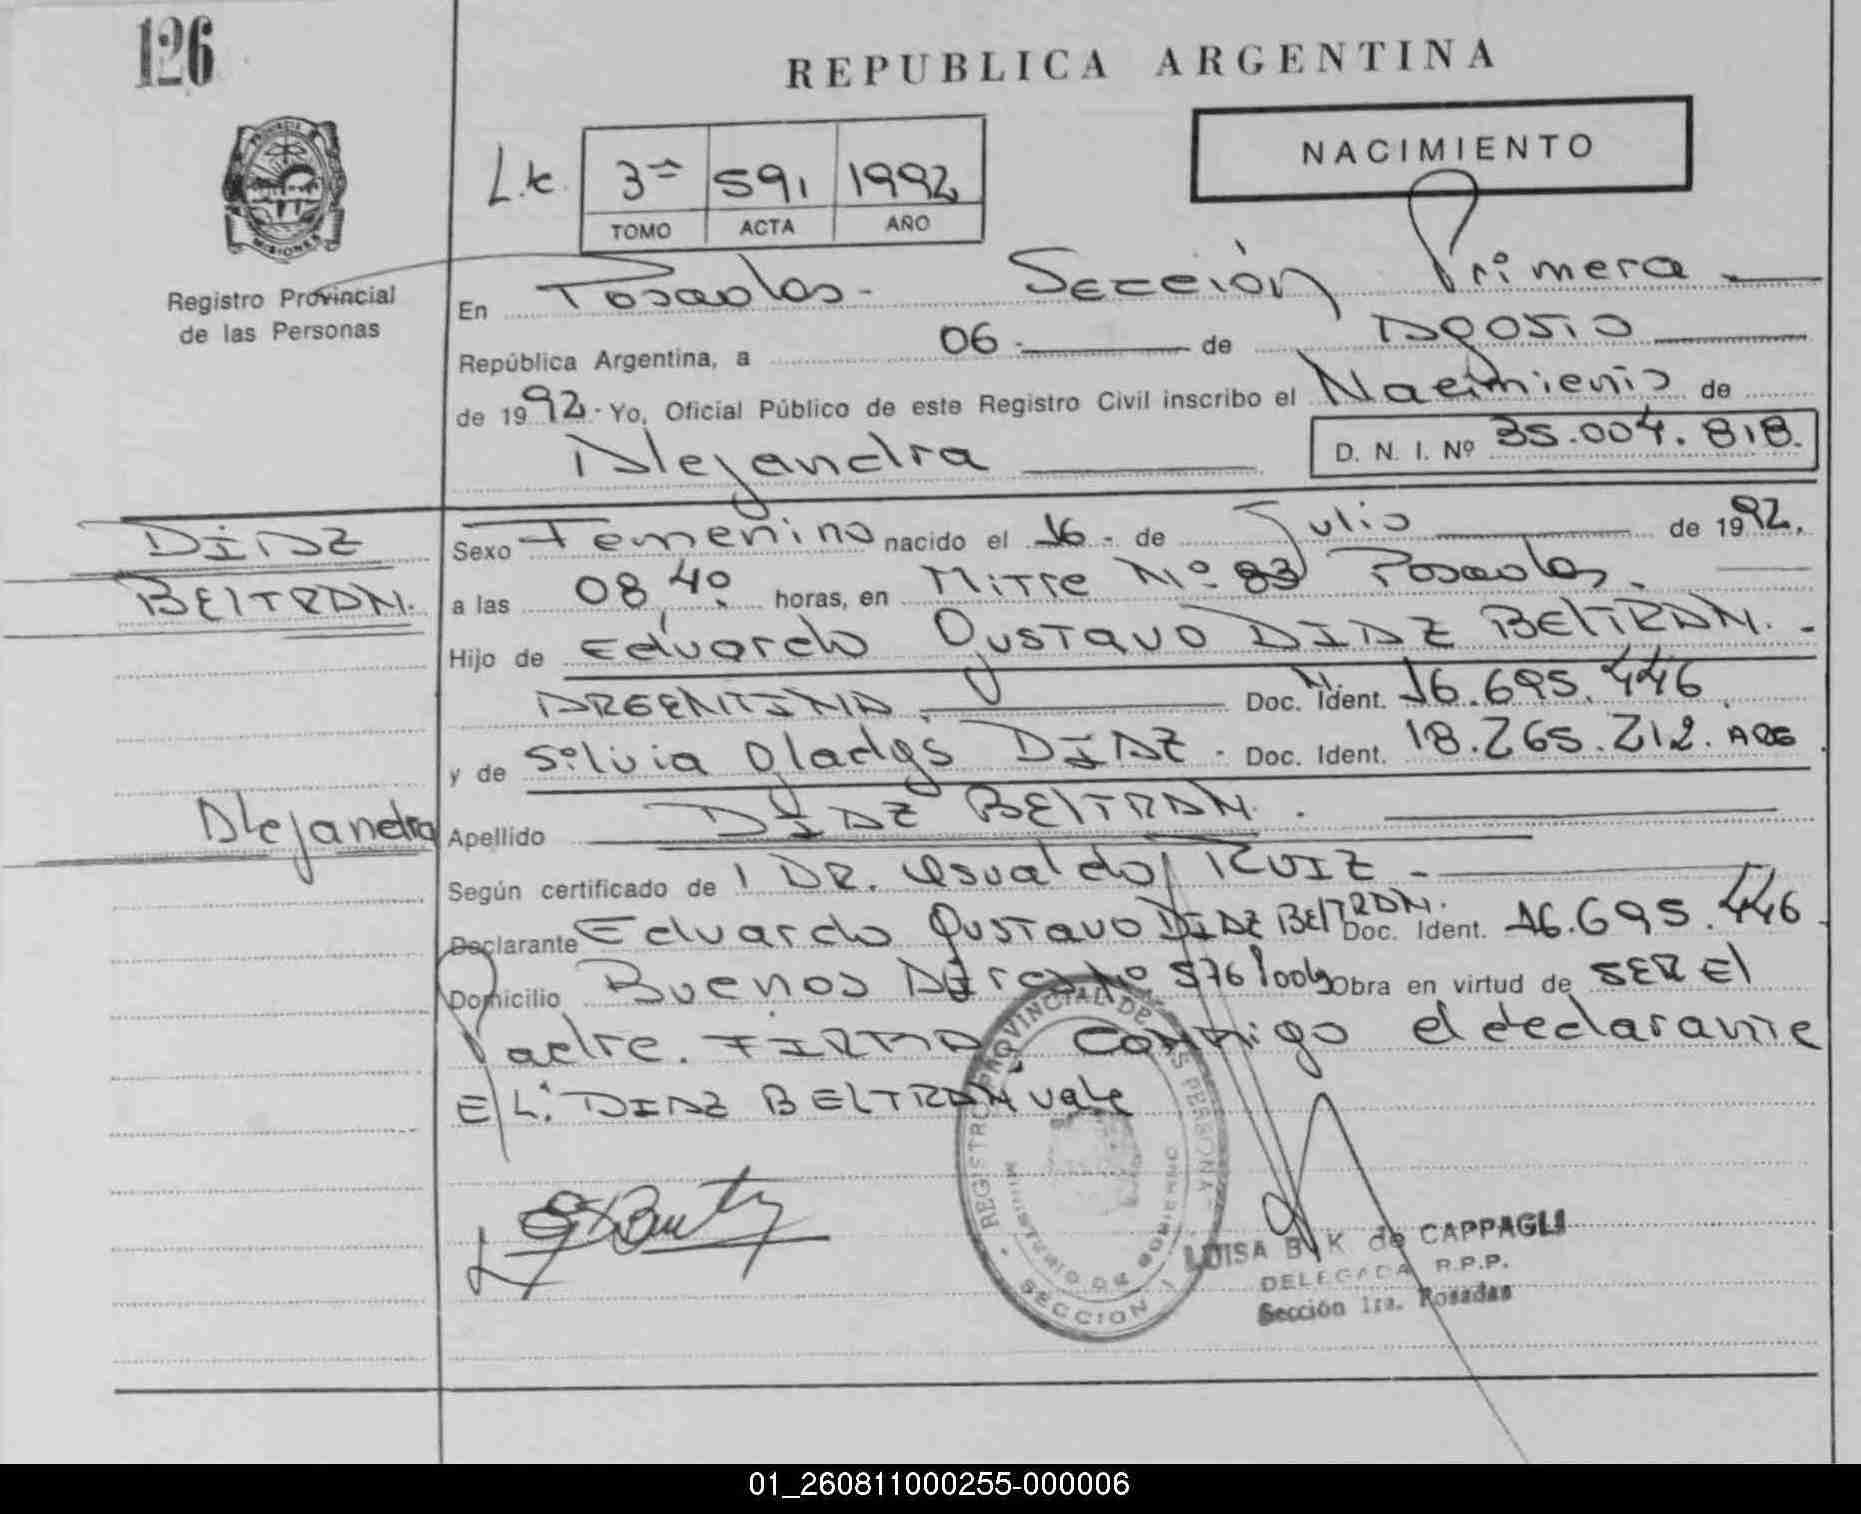 126
REPUBLICA ARGENTINA
NACIMIENTO
3ª 591 1992
TOMO ACTA AÑO
PROVINCIA DE MISIONES
Registro Provincial
de las Personas
En Posadas - Sección Primera
República Argentina, a 06 de Agosto
de 1992 - Yo, Oficial Público de este Registro Civil inscribo el Nacimiento de
Alejandra D. N. I. Nº 35.004.818.
DIAZ
BELTRAN.
Alejandra
Sexo Femenino nacido el 16 - de Julio de 1992.
a las 08,40 horas, en Mitre Nº 83 Posadas.
Hijo de Eduardo Gustavo DIAZ BELTRAN. -
ARGENTINA. Doc. N. Ident. 16.695.446
y de Silvia Gladys DIAZ - Doc. Ident. 18.265.212. ARG
Apellido DIAZ BELTRAN.
Según certificado de DR. Osvaldo RUIZ -
Declarante Eduardo Gustavo DIAZ BELTRAN. Doc. Ident. 16.695.446
Domicilio Buenos Aires Nº 576 Obra en virtud de SER El
Padre. FIRMA Conmigo el declarante
E/L: DIAZ BELTRAN vale
REGISTRO PROVINCIAL DE LAS PERSONAS
MINISTERIO DE GOBIERNO
SECCION 1
LUISA B. K de CAPPAGLI
DELEGADA R.P.P.
Sección 1ra. Posadas
01_260811000255-000006